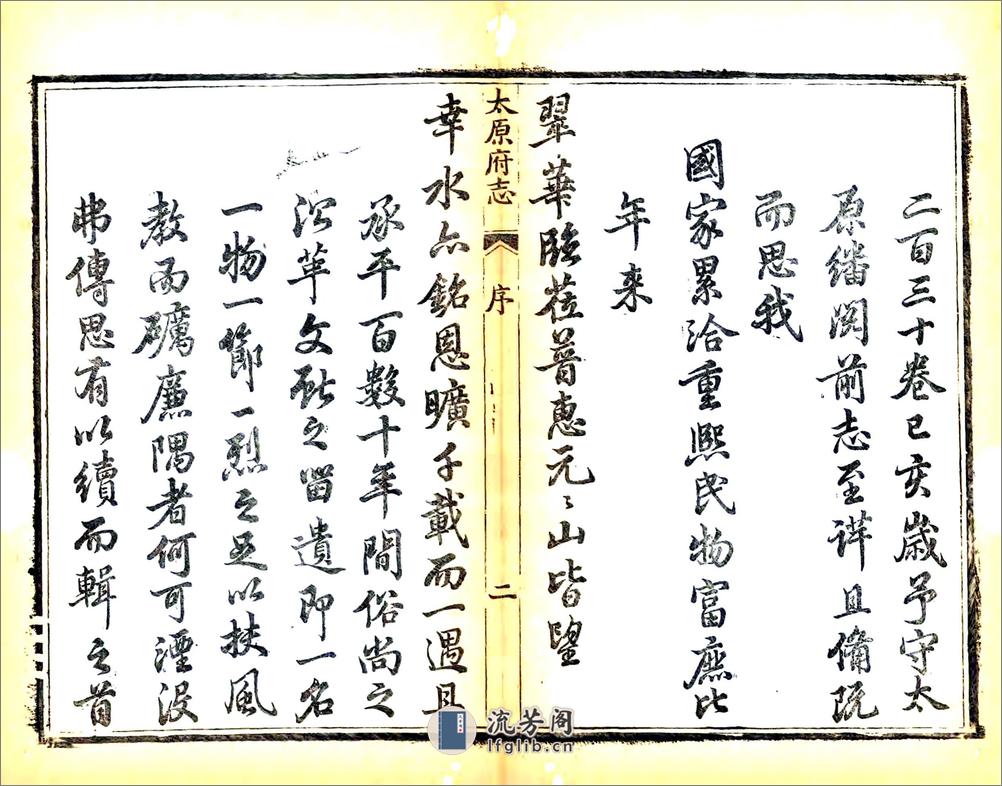 二百三十卷已亥歲予守太
原繙閱前志至詳且備既
而思我
國家累洽重熙民物富庶比
年来
翠華臨莅普惠元〻山皆望
太原府志
序
二
幸水亦銘恩曠千載而一遇且
承平百數十年間俗尚之
沿革文献之留遺即一名
一物一節一烈之足以扶風
教而礪廉隅者何可湮沒
弗傳思有以續而輯之首
流芳阁
lfglib.cn